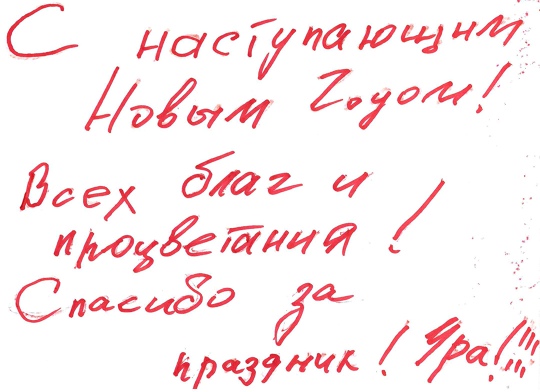 С наступающим
Новым Годом!
Всех благ и
процветания!
Спасибо за
праздник! Ура!!!!